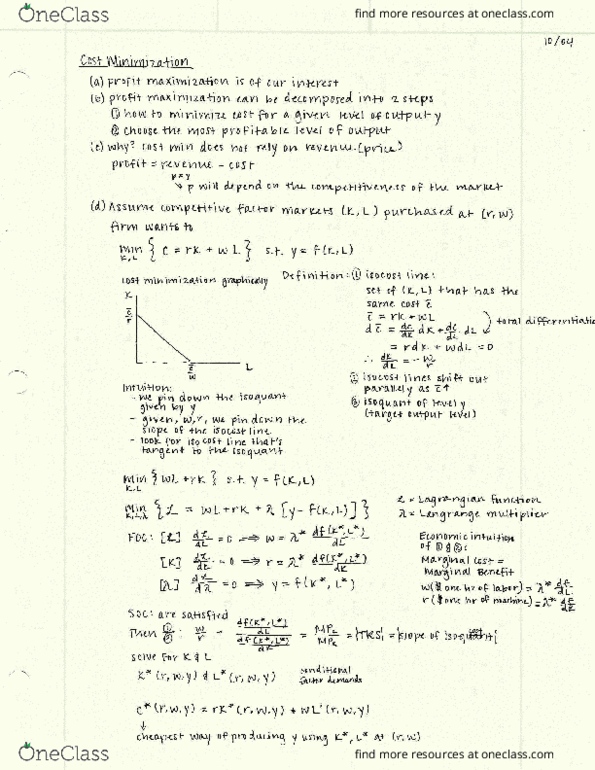 OneClass
find more resources at oneclass.com
10/04
Cost Minimization
(a) profit maximization is of our interest
(b) profit maximization can be decomposed into 2 steps
① how to minimize cost for a given level of output y
② choose the most profitable level of output
(c) why? cost min does not rely on revenue. (price)
profit = revenue - cost
p × y
↳ p will depend on the competitiveness of the market
(d) Assume competitive factor markets (K, L) purchased at (r, w)
firm wants to
min K,L { C = rK + wL } s.t. y = f(K, L)
cost minimization graphically
K
c̄/r
c̄/w
L
Definition: ① isocost line:
set of (K, L) that has the
same cost c̄
c̄ = rK + wL
dc̄ = dc/dK dK + dc/dL dL
total differentiatio
= rdK + wdL = 0
∴ dK/dL = - w/r
② isocost lines shift out
parallely as c̄↑
③ isoquant of level y
(target output level)
Intuition:
- we pin down the isoquant
given by y
- given, w, r, we pin down the
slope of the isocost line
- look for isocost line that's
tangent to the isoquant
min K,L { wL + rK } s.t. y = f(K, L)
min K,L,λ { ℒ = wL + rK + λ [y - f(K, L)] }
ℒ = Lagrangian function
λ = Langrange multiplier
FOC: [L] dℒ/dL = 0 ⟹ w = λ* df(K*, L*)/dL
[K] dℒ/dK = 0 ⟹ r = λ* df(K*, L*)/dK
[λ] dℒ/dλ = 0 ⟹ y = f(K*, L*)
Economic intuition
of ① & ②:
Marginal cost =
Marginal Benefit
w($ one hr of labor) = λ* df/dL
r($ one hr of machine) = λ* df/dK
SOC: are satisfied
Then ①/②: w/r = df(K*, L*)/dL / df(K*, L*)/dK = MPL/MPK = |TRS| = |slope of isoquant|
solve for K & L
K*(r, w, y) & L*(r, w, y)
conditional
factor demands
c*(r, w, y) = rK*(r, w, y) + wL*(r, w, y)
↓
cheapest way of producing y using K*, L* at (r, w)
OneClass
find more resources at oneclass.com